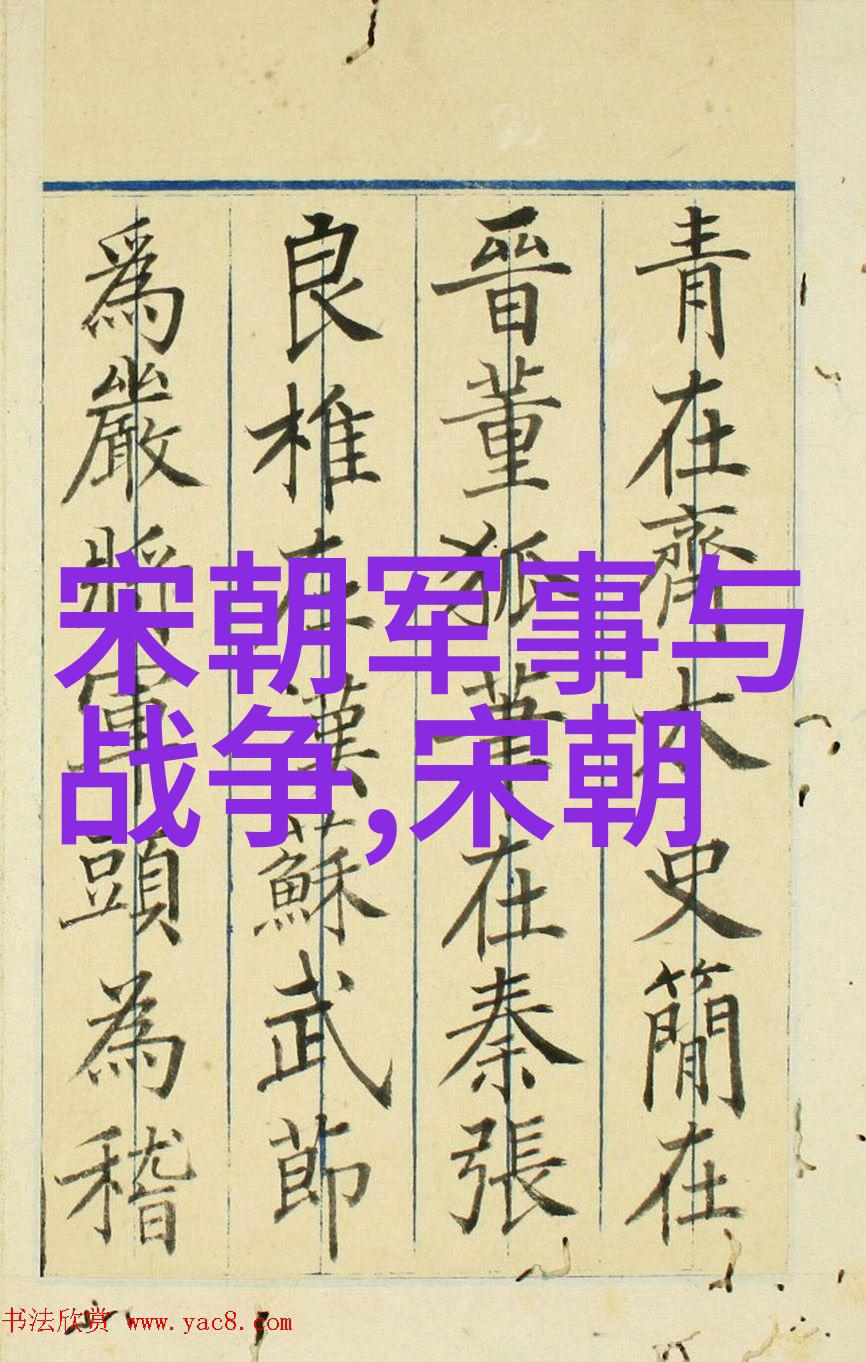 青在齊太史簡在
晉董狐筆在秦張
良椎在漢蘇武節
爲嚴將軍頭為稽
宋朝军事与
战争,宋朝
书法欣赏 www.yac8.com